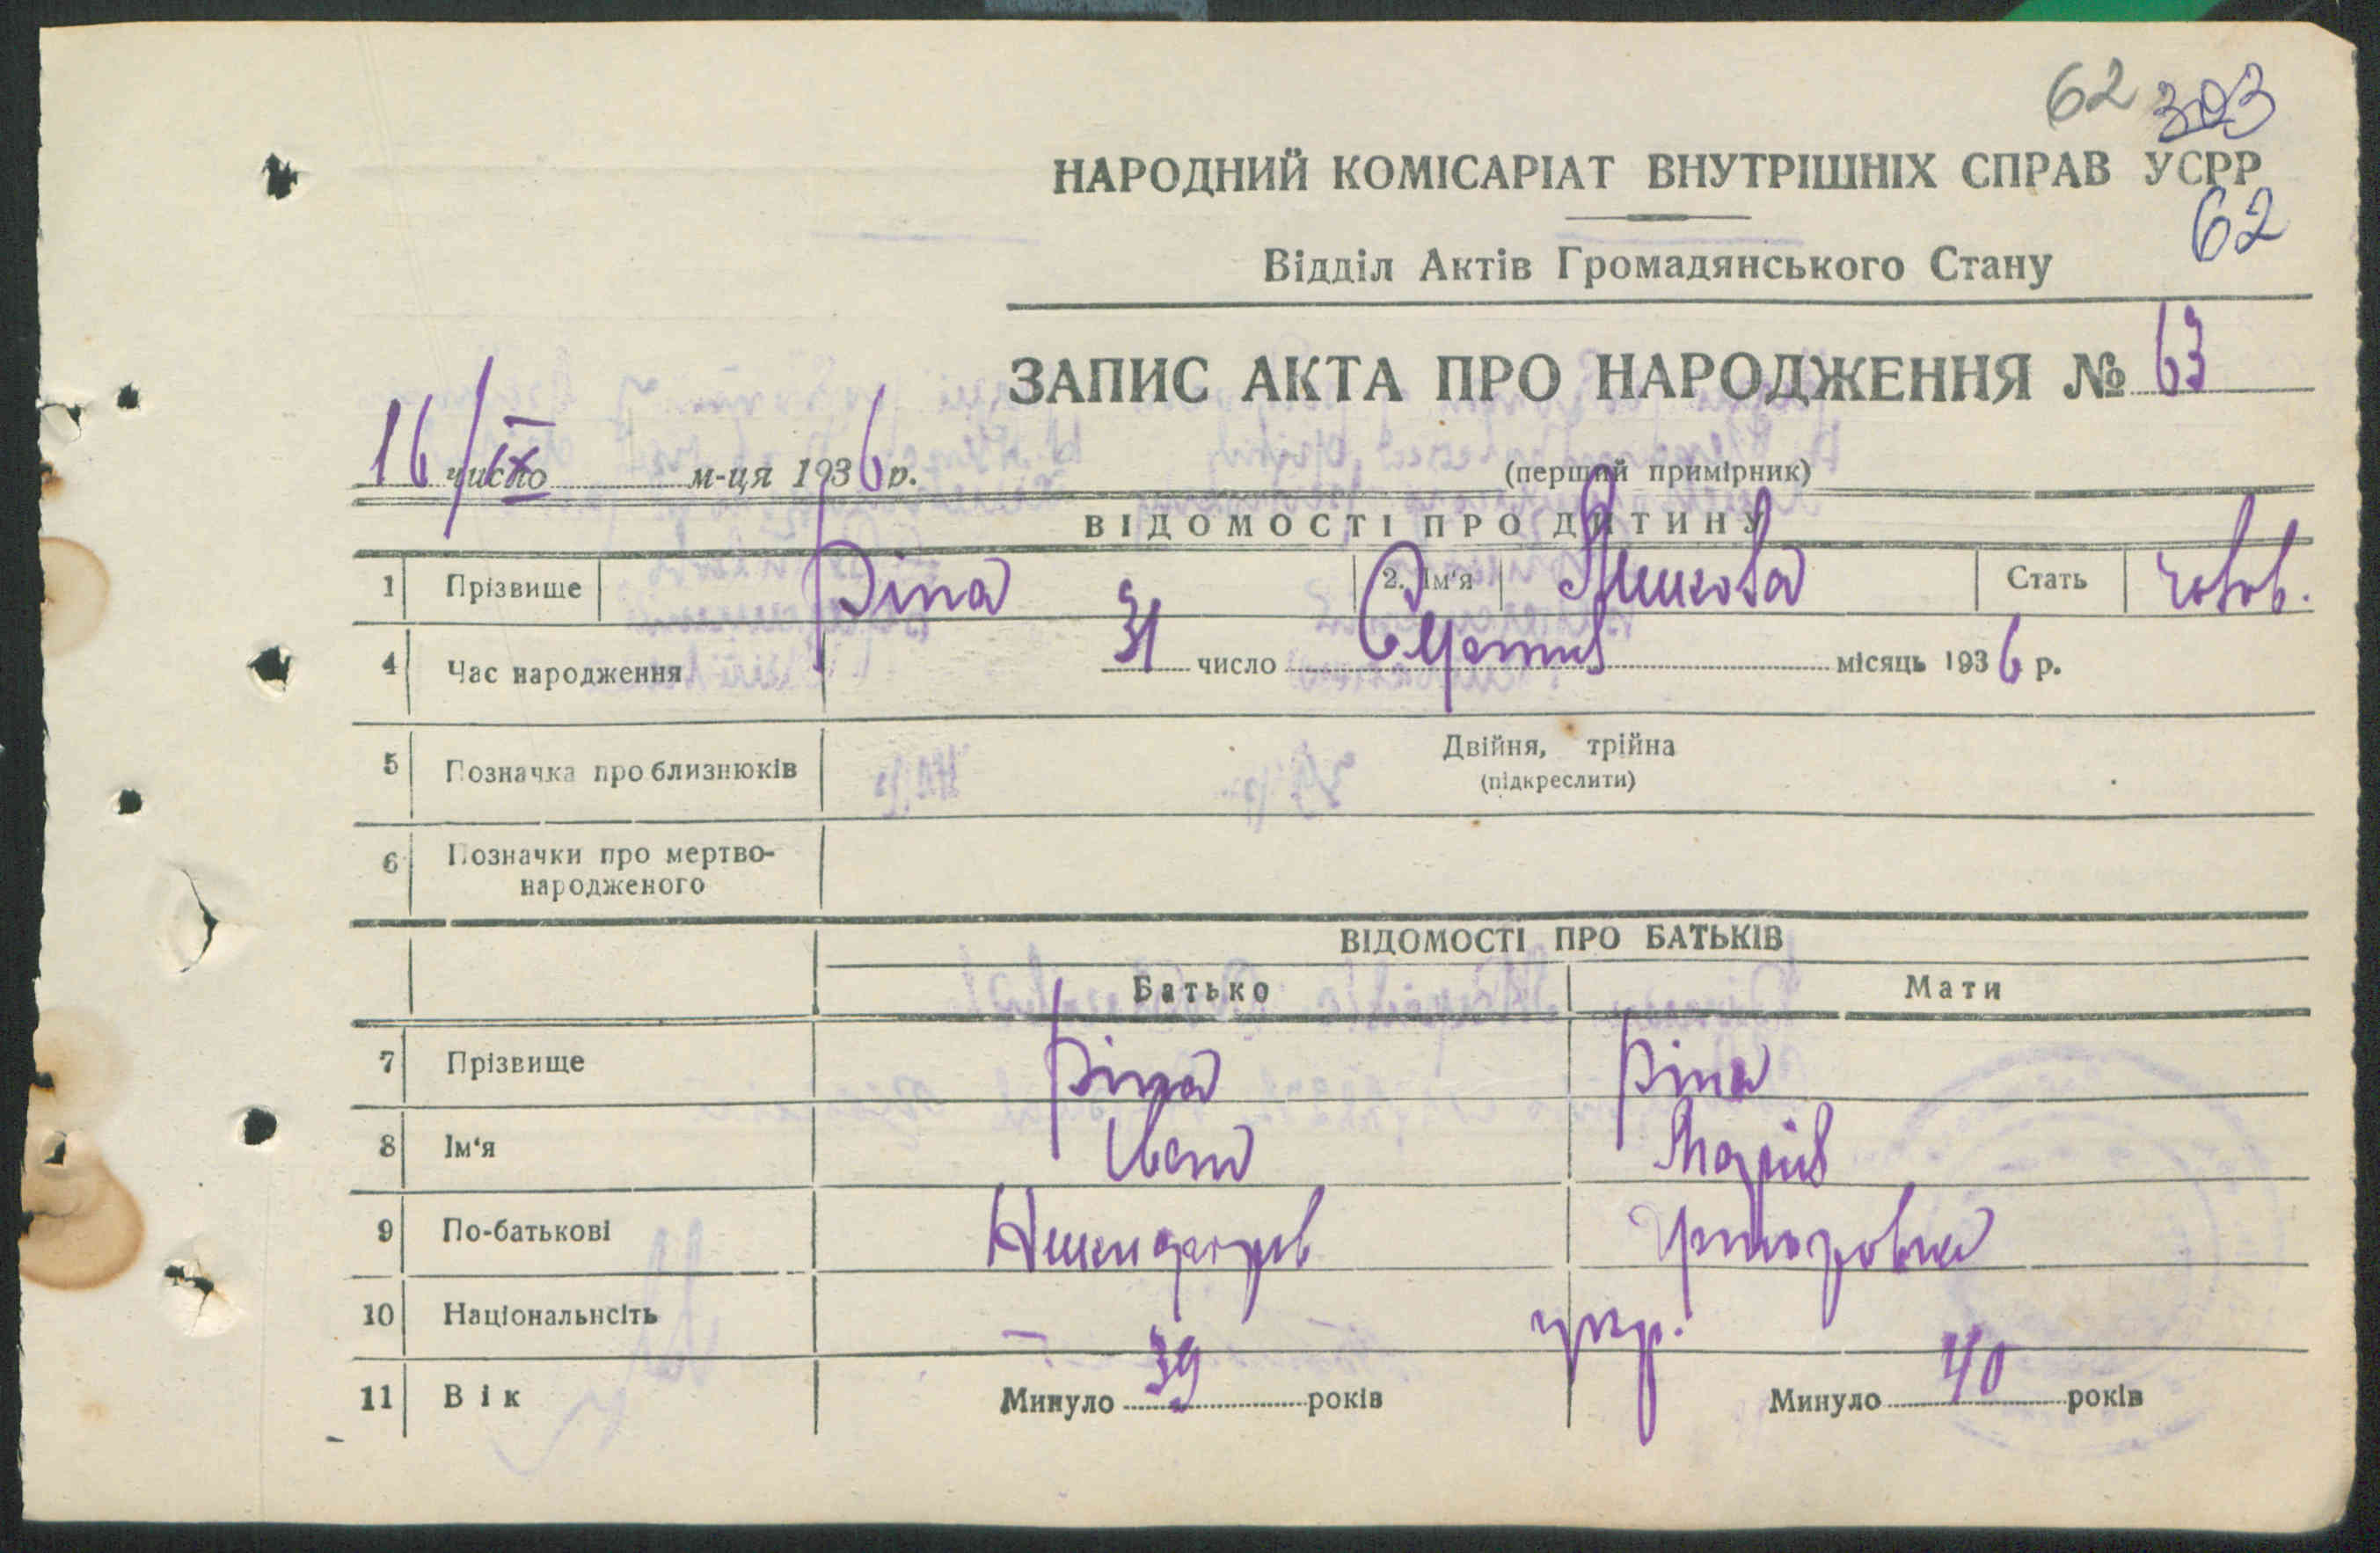 62 303
НАРОДНИЙ КОМІСАРІАТ ВНУТРІШНІХ СПРАВ УСРР
62
Відділ Актів Громадянського Стану
ЗАПИС АКТА ПРО НАРОДЖЕННЯ № 63
16/IX число м-ця 1936 р.
(перший примірник)
ВІДОМОСТІ ПРО ДИТИНУ
1 Прізвище Ріпа 2. Ім'я Микола Стать чолов.
4 Час народження 31 число Серпня місяць 1936 р.
5 Позначка про близнюків Двійня, трійна
(підкреслити)
6 Позначки про мертво-
народженого
ВІДОМОСТІ ПРО БАТЬКІВ
Батько Мати
7 Прізвище Ріпа Ріпа
8 Ім'я Іван Марія
9 По-батькові
10 Національнсіть укр.
11 Вік Минуло 39 років Минуло 40 років